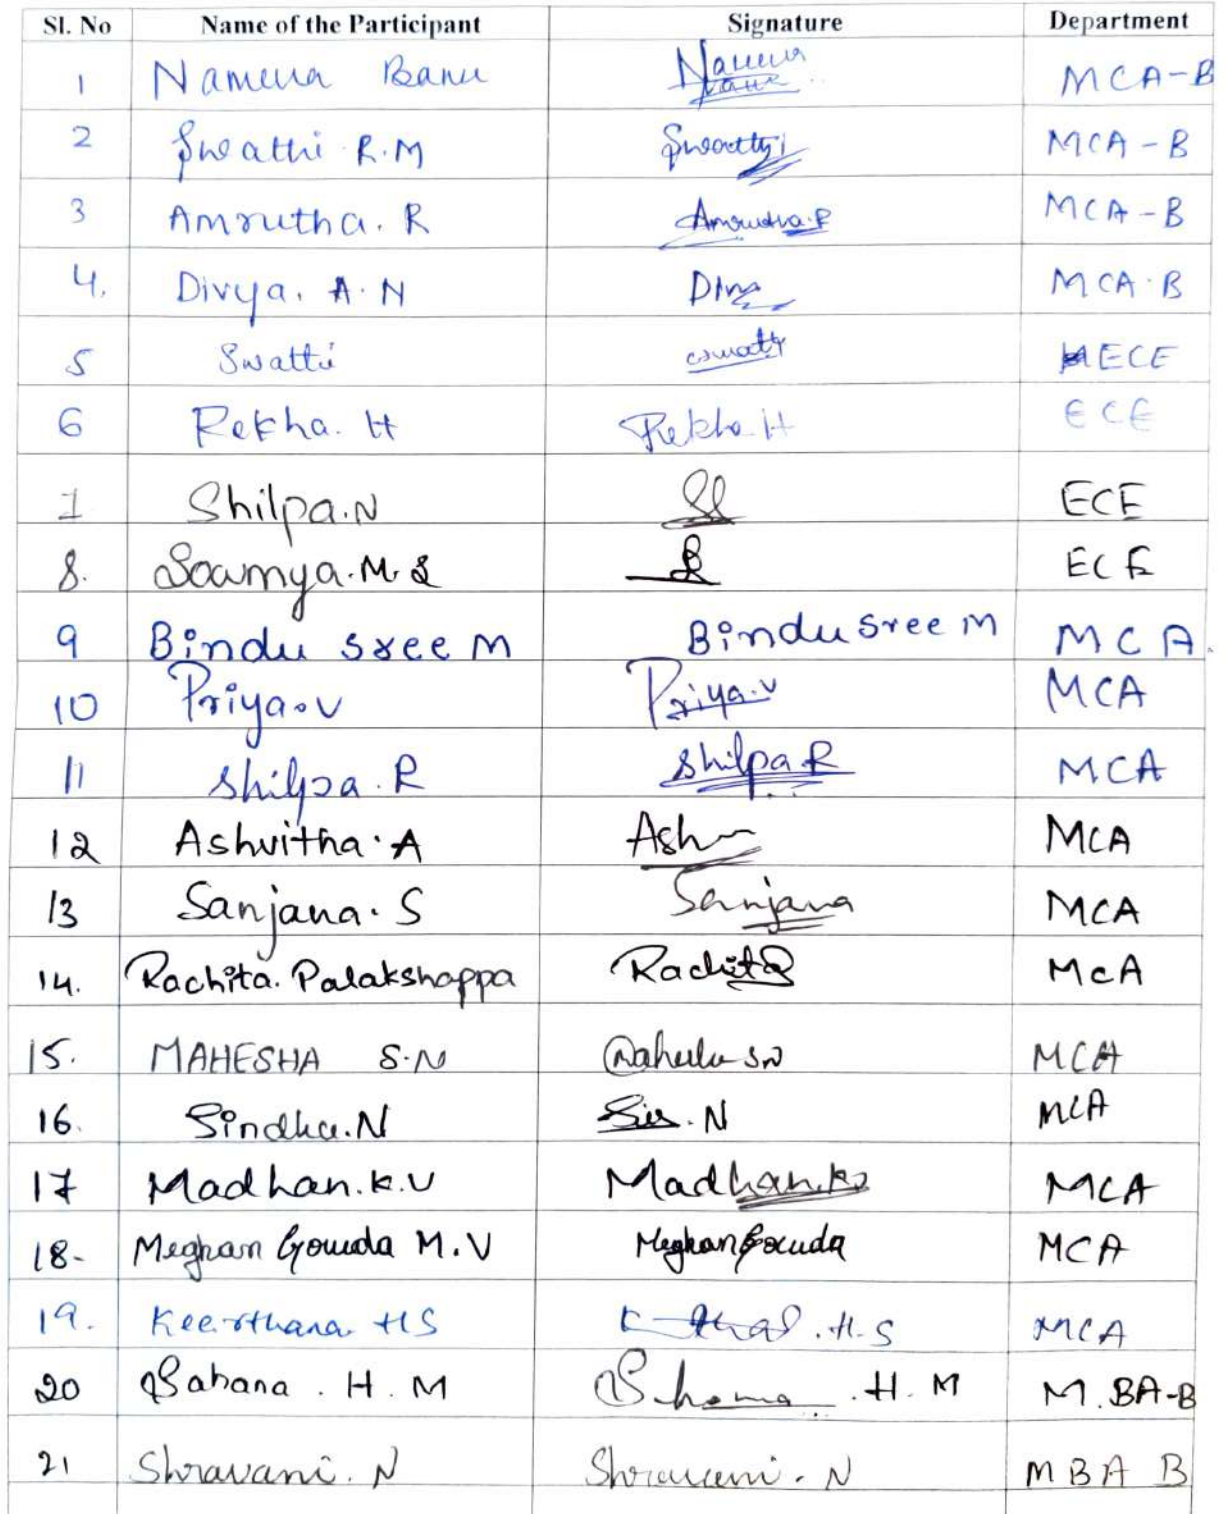 Sl. No Name of the Participant Signature Department
1 Namera Banu MCA-B
2 Swathi R.M Swathi MCA-B
3 Amrutha. R Amrutha.R MCA-B
4. Divya. A.N MCA.B
5 Swatti ECE
6 Rekha. H Rekha.H ECE
Shilpa.N ECE
8. Soumya.M.S ECE
9 Bindu sree M Bindu sree M MCA.
10 Priya.V Priya.V MCA
11 Shilpa.R Shilpa R MCA
12 Ashvitha.A Ash MCA
13 Sanjana.S Sanjana MCA
14. Rachita. Palakshappa Rachita MCA
15. MAHESHA S.N MCA
16. Sindhu.N N MCA
17 Madhan.K.V Madhan.K MCA
18- Meghan Gowda M.V Meghan Gowda MCA
19. Keerthana HS K .H.S MCA
20 Sahana . H . M .H. M M.BA-B
21 Shravani. N Shravani. N MBA B